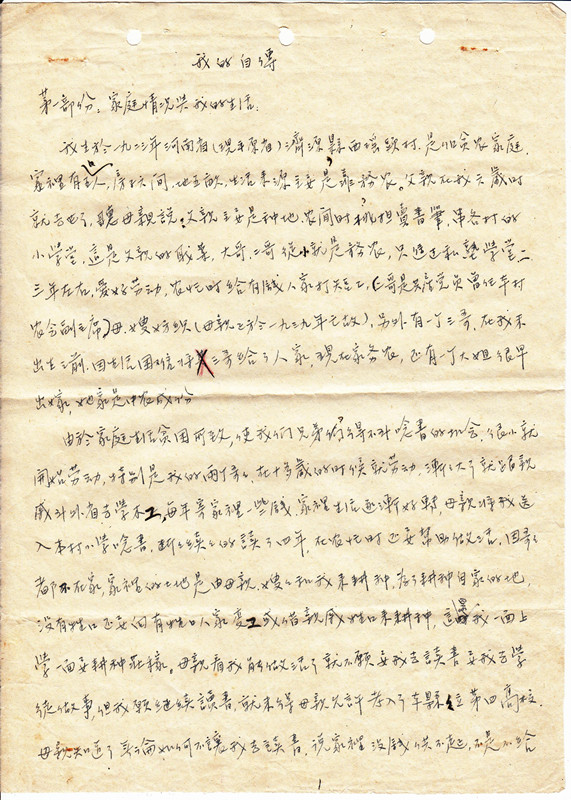 我的自傳
第一部份：家庭情况與我的生活：
我生於一九二三年河南省（現平原省）濟源縣西 村，是個貧农家庭，
家裡有 人，房 间，地 畝，生活来源主要是靠務农。父親在我六歲时
就去世了，聽母親說：父親主要是种地，农闲时挑担賣書筆，串各村的
小学堂，這是父親的職業，大哥、二哥從小就是務农，只進过私塾學堂二
三年左右，愛好劳动，农忙时给有钱人家打短工，（二哥是共産党员曾任本村
农会副主席）母、嫂 纺织（母親已於一九三九年亡故），另外有一个三哥，在我未
出生之前，因生活困难 三哥给了人家，現在家务农，还有一个大姐很早
出嫁，她家是中农成份
由於家庭生活貧困所致，使我們兄弟们得不到唸書的机会，很小就
開始劳动，特别是我的两个哥哥，在十多歲的时候就劳动，漸漸大了就跟親
戚到外省去學木工，每年寄家裡一些钱，家裡生活逐漸好轉，母親将我送
入本村小学唸書，断断续续的讀了四年，在农忙时还要幫助做活，因哥哥
都不在家，家裡的土地是由母親、嫂嫂和我来耕种，为了耕种自家的地，
没有牲口还要向有牲口人家变工或借親戚牲口来耕种，這樣我一面上
学一面要耕种莊稼。母親看我能做活了就不願要我去讀書要我去学
徒做事，但我願继续讀書，就未得母親允許考入了本縣 第四高校。
母親知道了 無論如何不讓我去讀書，說家裡没钱供不起，不是不给
1